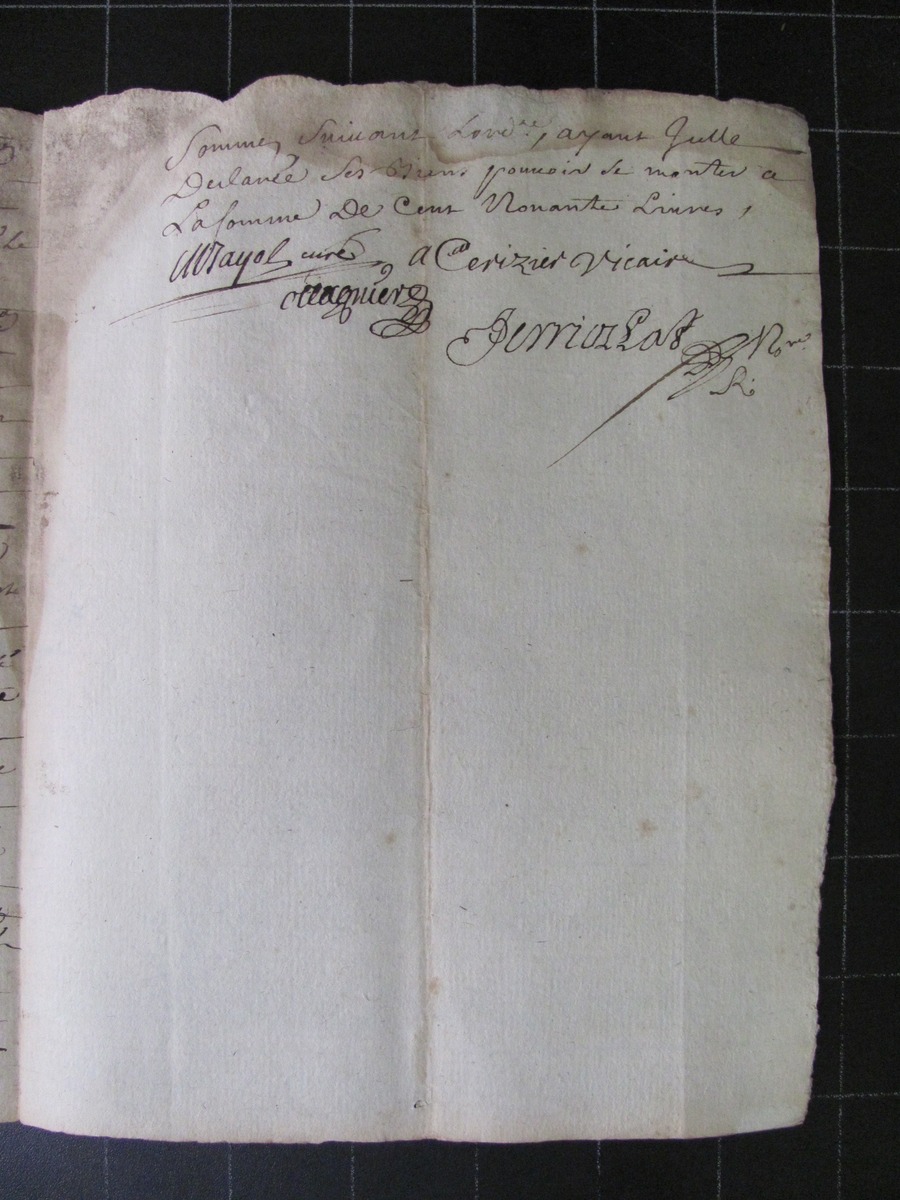 Sommes Suivant Lord.re, ayant Jcelle
Declaré Ses Biens pouvoir se monter a
La somme De Cent Nonante Livres,
Mayol curé a Cerizier Vicaire
Magnier
Perriolat Nore.
R.